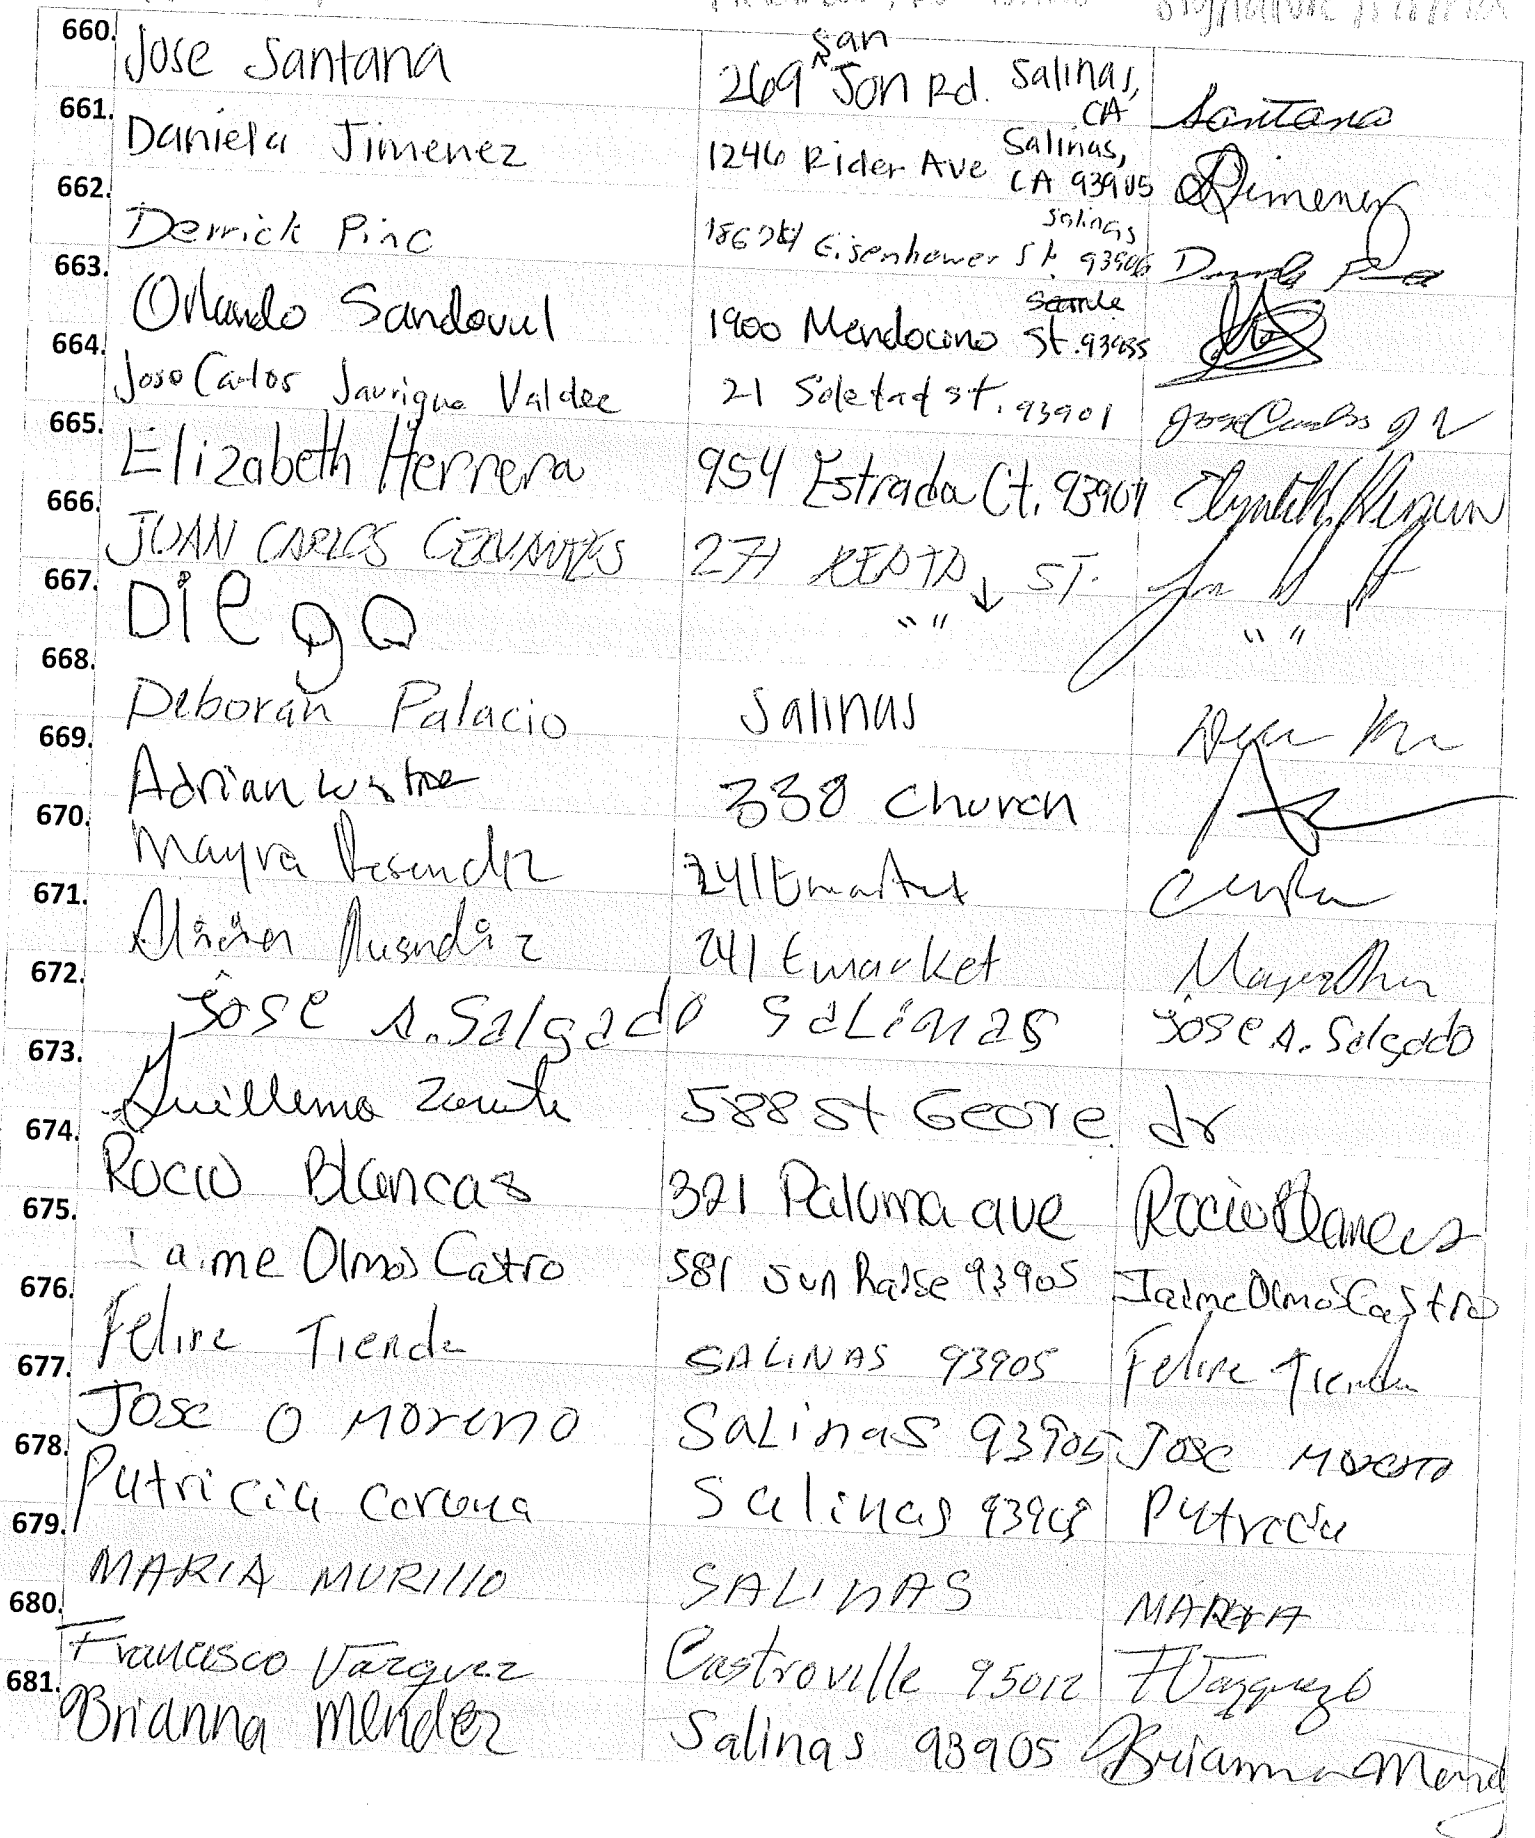 660. Jose Santana 269 San Jon Rd. Salinas, CA Santana
661. Daniela Jimenez 1246 Rider Ave Salinas, CA 93905 Jimenez
662. Derrick Eisenhower St. Salinas 93906
663. Orlando Sandoval 1900 St.
664. Jose Carlos 21 Soledad st. 93901 Jose Carlos
665. Elizabeth Herrera 954 Estrada Ct. 93907
666. JUAN CARLOS CERVANTES 271 ST.
667. Diego " " " "
668. Deborah Palacio Salinas
669. Adrian 338 Church
670. Mayra 241
671. 241 E market
672. Jose A. Salgado SaLinas Jose A. Salgado
673. Guillermo Zarate 588 St Geore dr
674. Rocio Blancas 321 Paloma ave Rocio Blancas
675. aime Olmos Catro 581 Sun Raise 93905 Jaime Olmos Castro
676. Felipe Tienda SALINAS 93905 Felipe Tienda
677. Jose O Moreno SaLinas 93905 Jose Moreno
678. Patricia Corona Salinas Patricia
679. MARIA MURIllO SALINAS MARIA
680. Francisco Vazquez Castroville 95012 F Vazquez
681. Brianna Mendez Salinas 93905 Brianna Mend